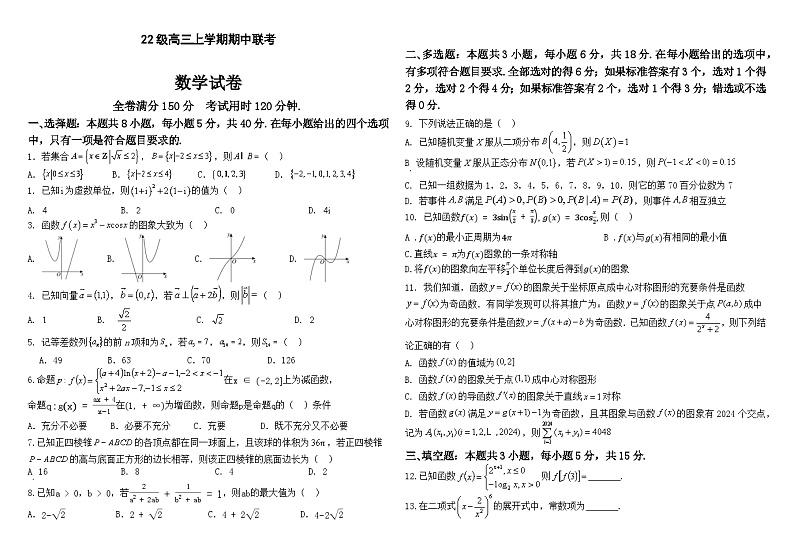 22级高三上学期期中联考
数学试卷
全卷满分150分 考试用时120分钟.
一、选择题：本题共8小题，每小题5分，共40分.在每小题给出的四个选项
中，只有一项是符合题目要求的.
1. 若集合 A={x∈Z|√x≤2}，B={x|-2≤x≤3}，则A∩B=（ ）
A. {x|0≤x≤3} B. {x|-2≤x≤4} C. {0,1,2,3} D. {-2,-1,0,1,2,3,4}
1. 已知i为虚数单位，则(1+i)²+2(1-i)的值为（ ）
A. 4 B. 2 C. 0 D. 4i
3. 函数f(x)=x³-xcosx的图象大致为（ ）
A. B. C. D.
4. 已知向量a=(1,1)，b=(0,t)，若a⊥(a+2b)，则|b|=（ ）
A. 1 B. √2/2 C. √2 D. 2
5. 记等差数列{aₙ}的前n项和为Sₙ，若
A. 49 B. 63 C. 70 D.126
6.命题p:f(x)={(a+4)ln(x+2)-a-1,-2<x<-1
x²+2ax-7,-1≤x≤2 在x∈(-2,2]上为减函数，
命题q:g(x)=(ax+4)/(x-1)在(1,+∞)为增函数，则命题p是命题q的（ ）条件
A. 充分不必要 B. 必要不充分 C. 充要 D. 既不充分又不必要
7.已知正四棱锥P-ABCD的各顶点都在同一球面上，且该球的体积为36π，若正四棱锥
P-ABCD的高与底面正方形的边长相等，则该正四棱锥的底面边长为（ ）
A 16 B. 8 C. 4 D. 2
8.已知a > 0，b > 0，若2/(a²+2ab) + 1/(b²+ab) = 1，则ab的最大值为（ ）
A. 2-√2 B. 2 + √2 C. 4 + 2√2 D. 4-2√2
二、多选题：本题共3小题，每小题6分，共18分.在每小题给出的选项中，
有多项符合题目要求.全部选对的得6分；如果标准答案有3个，选对1个得
2分，选对2个得4分；如果标准答案有2个，选对1个得3分；错选或不选
得0分.
9. 下列说法正确的是（ ）
A. 已知随机变量X服从二项分布B(4,1/2)，则D(X)=1
B 设随机变量X服从正态分布N(0,1)，若P(X>1)=0.15，则P(-1<X<0)=0.15
C. 已知一组数据为1，2，3，4，5，6，7，8，9，10，则它的第70百分位数为7
D. 若事件A,B满足P(A)>0,P(B)>0,P(B|A)=P(B)，则事件A,B相互独立
10. 已知函数f(x) = 3sin(x/2 + π/3)，g(x) = 3cos x/2，则（ ）
A .f(x)的最小正周期为4π B .f(x)与g(x)有相同的最小值
C.直线x = π为f(x)图象的一条对称轴
D.将f(x)的图象向左平移π/3个单位长度后得到g(x)的图象
11. 我们知道，函数y=f(x)的图象关于坐标原点成中心对称图形的充要条件是函数
y=f(x)为奇函数，有同学发现可以将其推广为：函数y=f(x)的图象关于点P(a,b)成中
心对称图形的充要条件是函数y=f(x+a)-b为奇函数.已知函数f(x)=4/(2ˣ+2)，则下列结
论正确的有（ ）
A. 函数f(x)的值域为(0,2]
B. 函数f(x)的图象关于点(1,1)成中心对称图形
C. 函数f(x)的导函数f′(x)的图象关于直线x=1对称
D. 若函数g(x)满足y=g(x+1)-1为奇函数，且其图象与函数f(x)的图象有2024个交点，
记为Aᵢ(xᵢ,yᵢ)(i=1,2,L ,2024)，则∑(i=1→2024)(xᵢ+yᵢ)=4048
三、填空题：本题共3小题，每小题5分，共15分.
12.已知函数f(x)={2ˣ⁺¹,x≤0
-log₃x,x>0 则f[f(3)]=______.
13.在二项式(x-2/x²)⁶的展开式中，常数项为______.